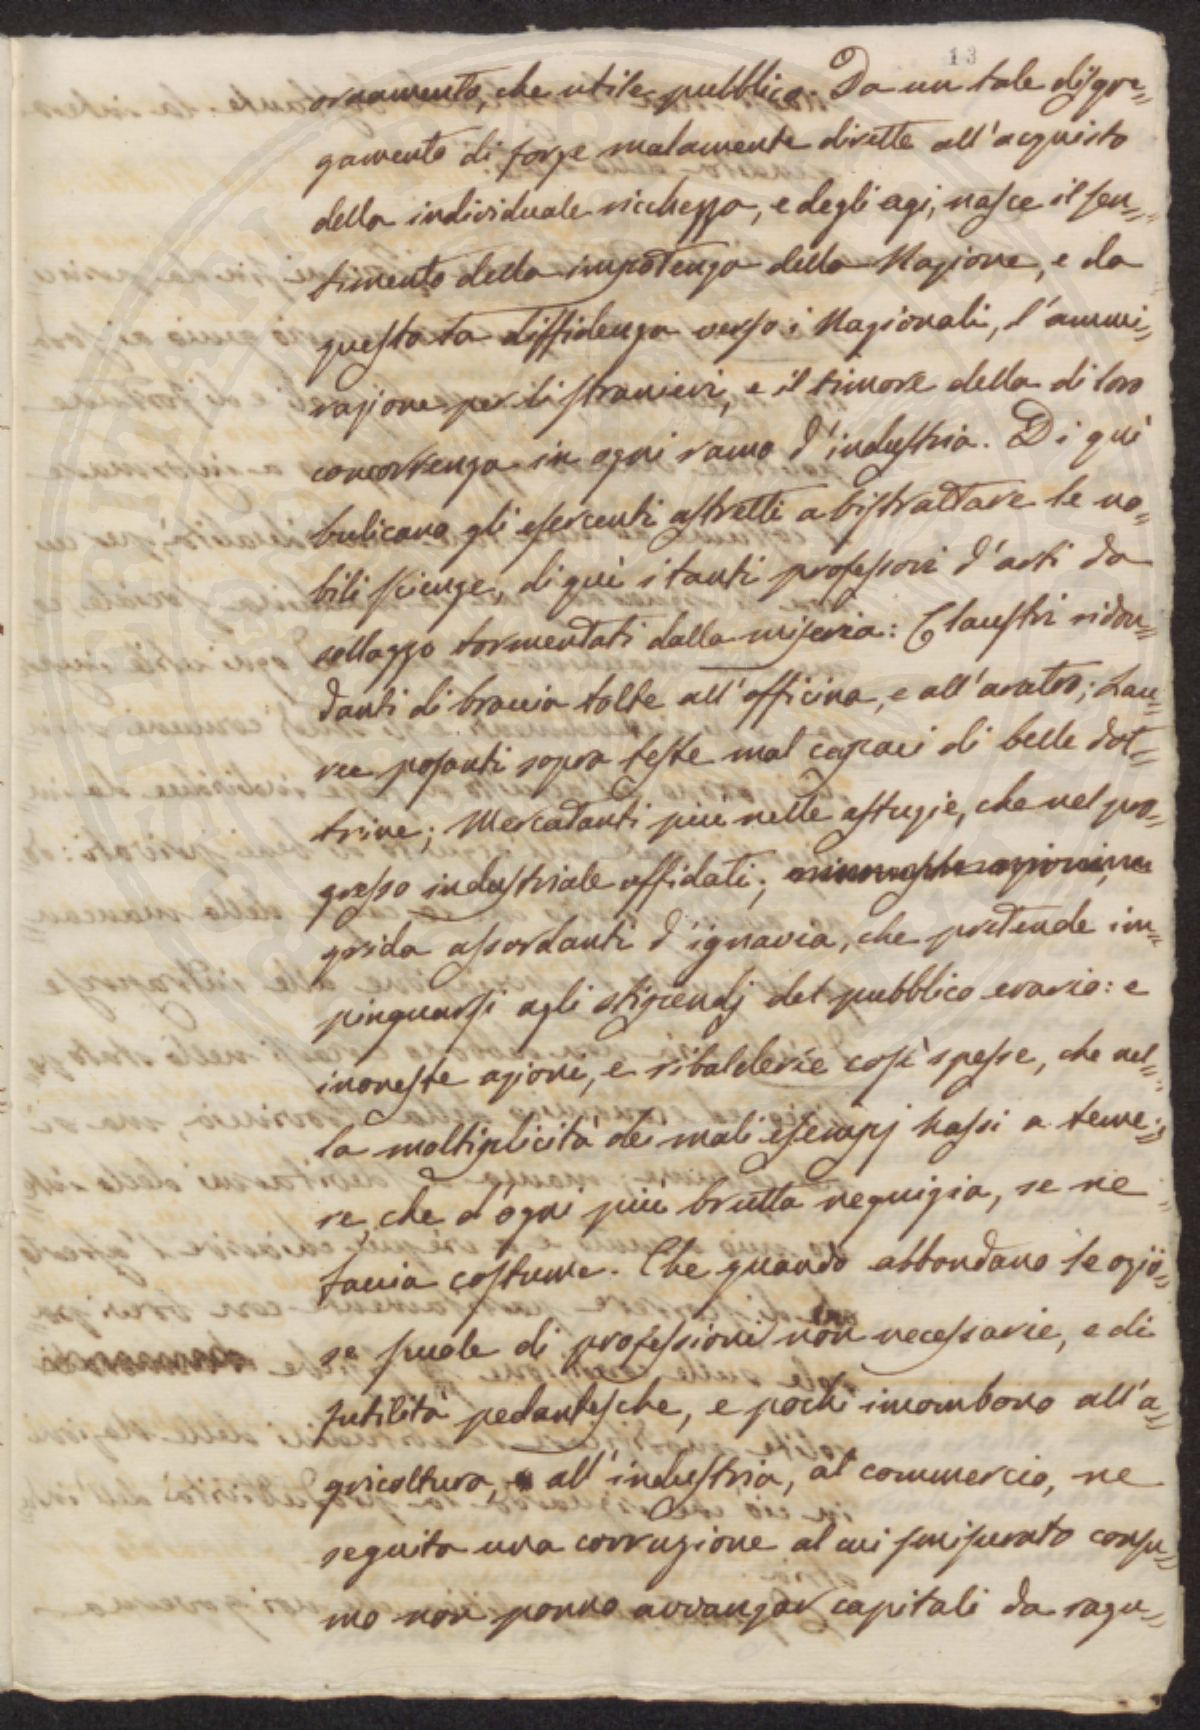 13
ornamento, che utile pubblico. Da un tale disgre=
gamento di forze malamente dirette all'acquisto
della individuale ricchezza, e degli agi, nasce il sen=
timento della impotenza della Nazione, e da
questa la diffidenza verso i Nazionali, l'ammi=
razione per li stranieri, e il timore della di loro
concorrenza in ogni ramo d'industria. Di qui
bulicano gli esercenti astretti a bistrattare le no=
bili scienze, di qui i tanti professori d'arti da
sollazzo tormentati dalla miseria: Claustri ridon=
danti di braccia tolte all'officina, e all'aratro; Lau=
ree posanti sopra teste mal capaci di belle dot=
trine; Mercadanti più nelle astuzie, che nel pro=
gresso industriale affidati;
grida assordanti d'ignavia, che pretende im=
pinguarsi agli stipendj del pubblico erario: e
inoneste azioni, e ribalderie così spesse, che nel=
la moltiplicità dei mali esempj hassi a teme=
re, che d'ogni più brutta nequizia, se ne
faccia costume. Che quando abbondano le ozio=
se scuole di professioni non necessarie, e di
futilità pedantesche, e pochi incombono all'a=
gricoltura, all'industria, al commercio, ne
seguita una corruzione al cui smisurato consu=
mo non ponno avvanzar capitali da ragu=